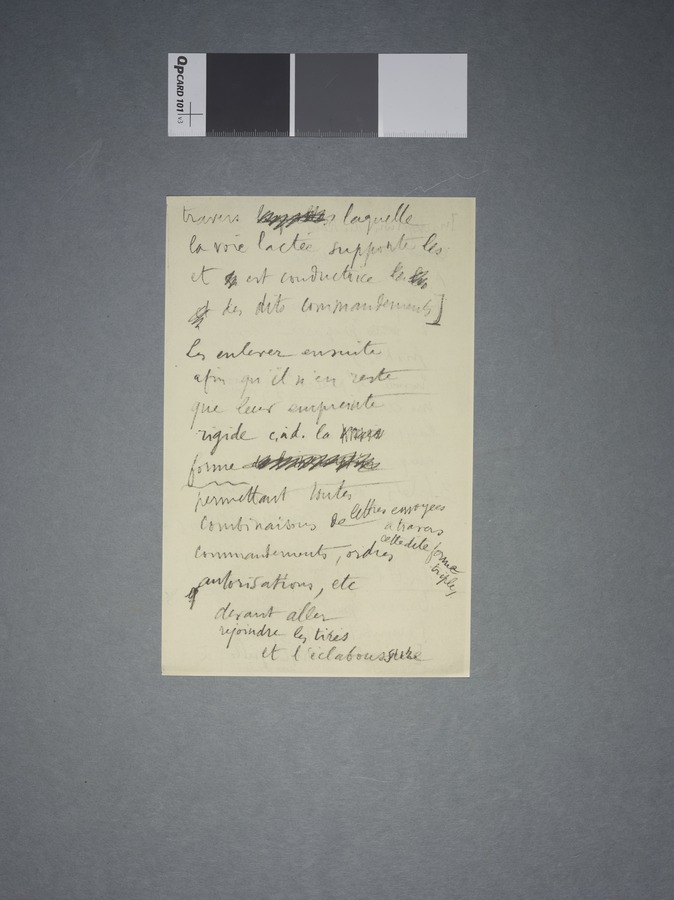 QPCARD 101 v3
travers laquelle
la voie lactée supporte les
et est conductrice
des dits commandements]
Les enlever ensuite
afin qu'il n'en reste
que leur empreinte
rigide c.àd. la
forme
permettant toutes
combinaisons de lettres envoyées
à travers
cette dite forme
triple,
commandements, ordres
autorisations, etc
devant aller
rejoindre les tirés
et l'éclaboussure